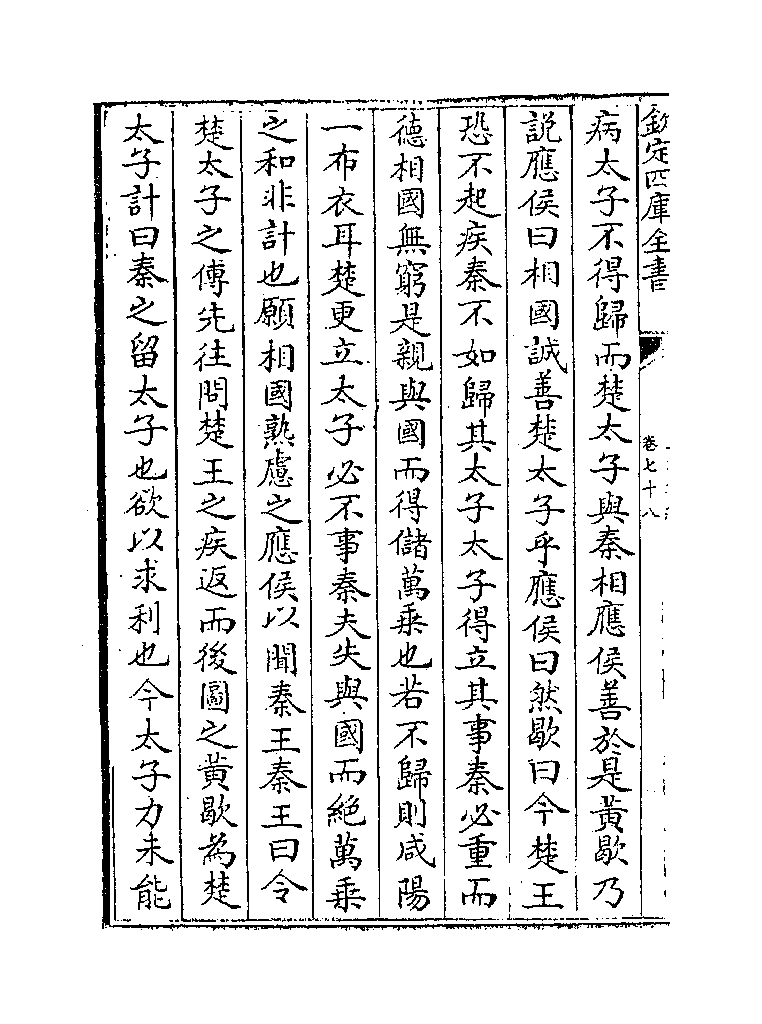 欽定四庫全書
卷七十八
病太子不得歸而楚太子與秦相應侯善於是黄歇乃
説應侯曰相國誠善楚太子乎應侯曰然歇曰今楚王
恐不起疾秦不如歸其太子太子得立其事秦必重而
德相國無窮是親與國而得儲萬乗也若不歸則咸陽
一布衣耳楚更立太子必不事秦夫失與國而絶萬乗
之和非計也願相國熟慮之應侯以聞秦王秦王曰令
楚太子之傅先往問楚王之疾返而後圖之黄歇為楚
太子計曰秦之留太子也欲以求利也今太子力未能